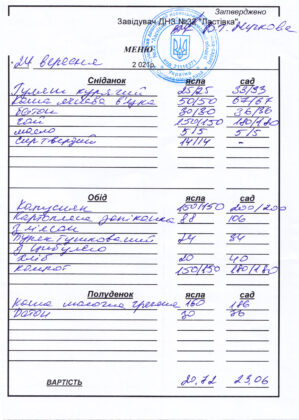 Затверджено
Завідувач ДНЗ №33 "Ластівка"
МЕНЮ
24 вересня
2 021р.
Сніданок ясла сад
Гуляш курячий 25/25 33/33
Каша ячнева в'язка 50/50 67/67
Батон 30/30 36/36
Чай 150/150 180/180
масло 5/5 5/5
Сир твердий 14/14 -
Обід ясла сад
Капусняк 150/150 200/200
Картопляна запіканка 88 106
З м'ясом
Буряк тушкований 24 34
з цибулею
Хліб 20 40
компот 150/150 180/180
Полуденок ясла сад
Каша молочна гречана 160 186
Батон 30 36
ВАРТІСТЬ 20,72 23,06